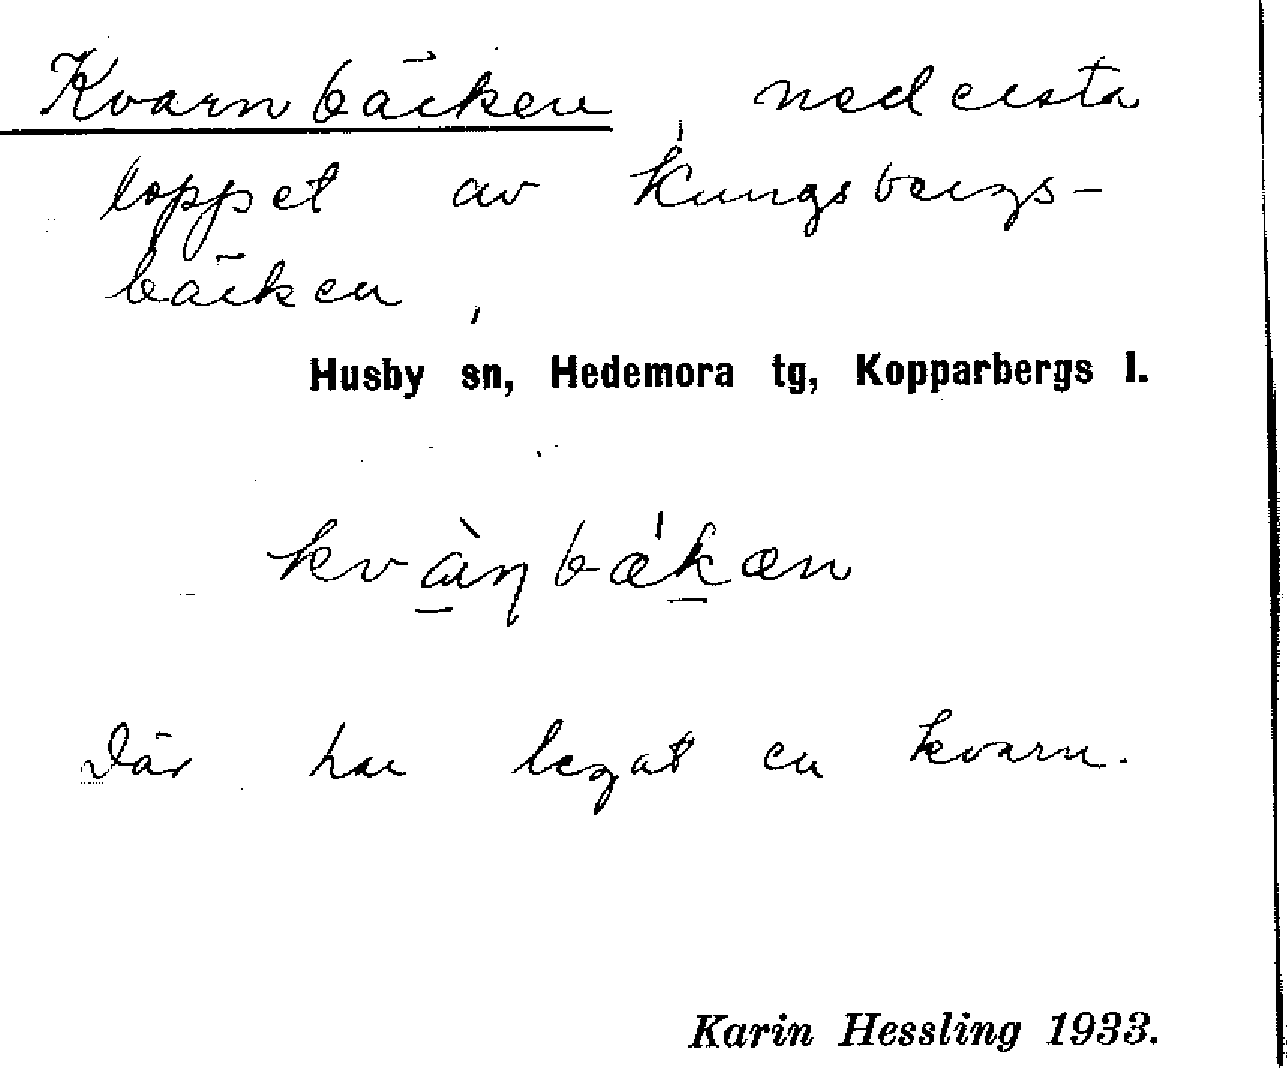 Kvarnbäcken, nedersta
loppet av Kungsbergs-
bäcken,
Husby sn, Hedemora tg, Kopparbergs l.
kvàṇbǽkæn
Där har legat en kvarn.
Karin Hessling 1933.